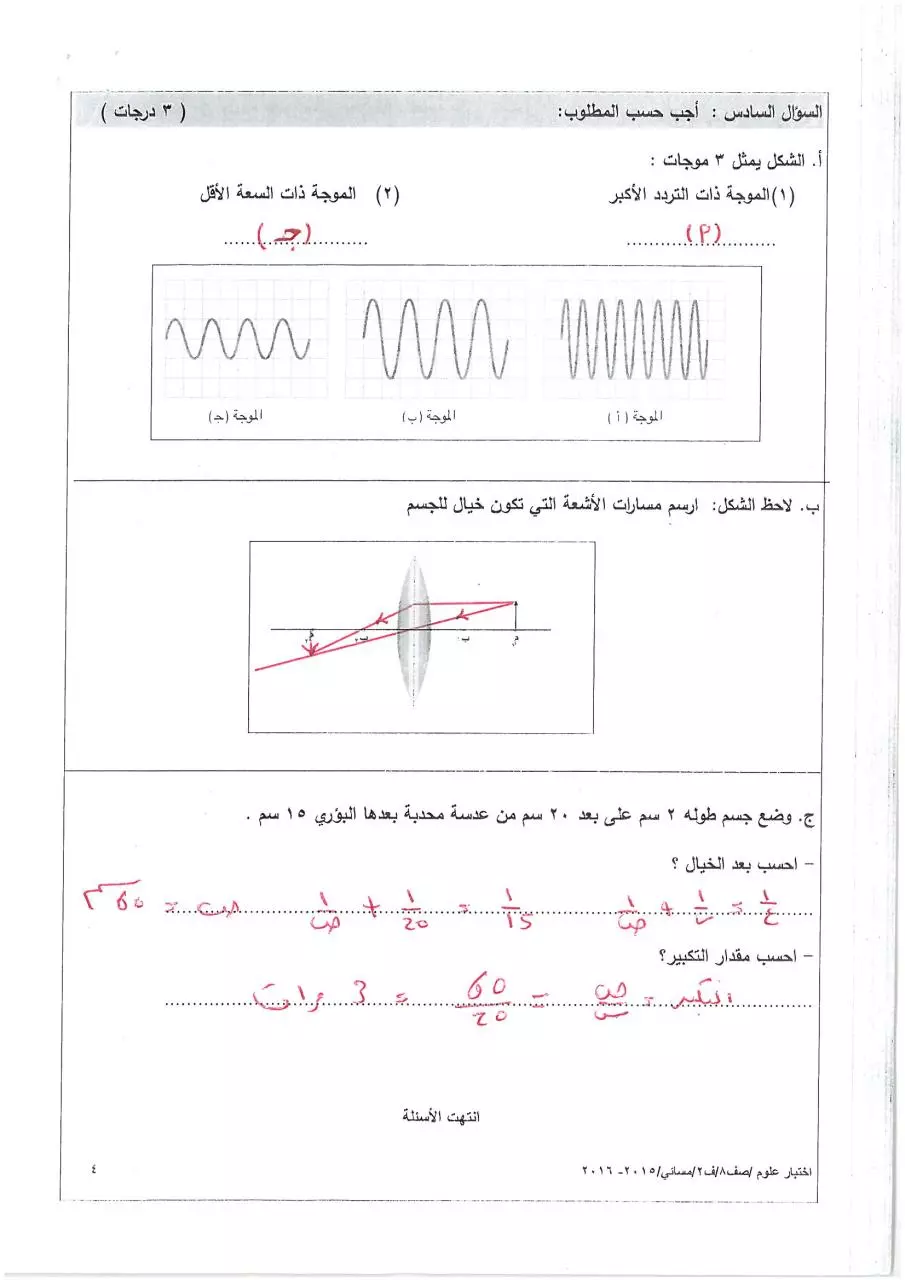 السؤال السادس : أجب حسب المطلوب: ( ٣ درجات )
أ. الشكل يمثل ٣ موجات :
(١) الموجة ذات التردد الأكبر (٢) الموجة ذات السعة الأقل
(أ) (جـ)
الموجة (أ) الموجة (ب) الموجة (جـ)
ب. لاحظ الشكل: ارسم مسارات الأشعة التي تكون خيال للجسم
ج. وضع جسم طوله ٢ سم على بعد ٢٠ سم من عدسة محدبة بعدها البؤري ١٥ سم .
– احسب بعد الخيال ؟
١/ع = ١/س + ١/ص ١/15 = ١/20 + ١/ص ص = 60 سم
– احسب مقدار التكبير؟
التكبير = ص/س = 60/20 = 3 مرات
انتهت الأسئلة
اختبار علوم /صف٨/ف٢/مسائي/٢٠١٥- ٢٠١٦ ٤